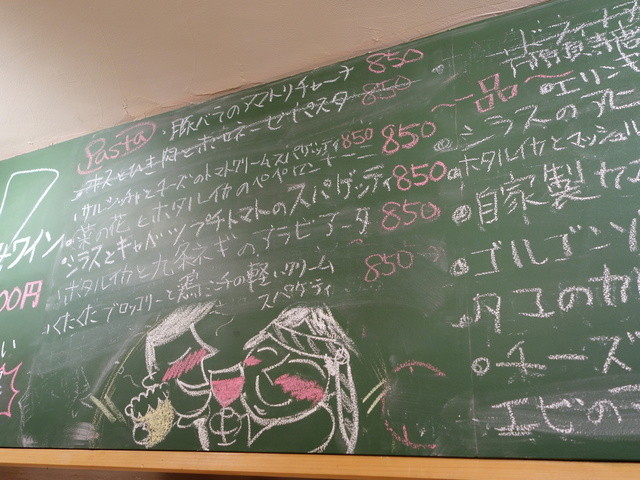 Pasta
・豚バラのアマトリチャーナ 850
ナスとひき肉とボロネーゼパスタ 850
サルシッチャとチーズのトマトクリームスパゲッティ 850
菜の花とホタルイカのペペロンチーニ 850
シラスとキャベツプチトマトのスパゲッティ 850
ホタルイカと九条ネギのアラビアータ 850
くたくたブロッコリーと鶏ささみの軽いクリーム
スペゲティ 850
ワイン
00円
い
〜一品〜
エリンギ
シラスの
ホタルイカとマッシュル
自家製
ゴルゴンゾ
タコのカル
チーズ
エビの